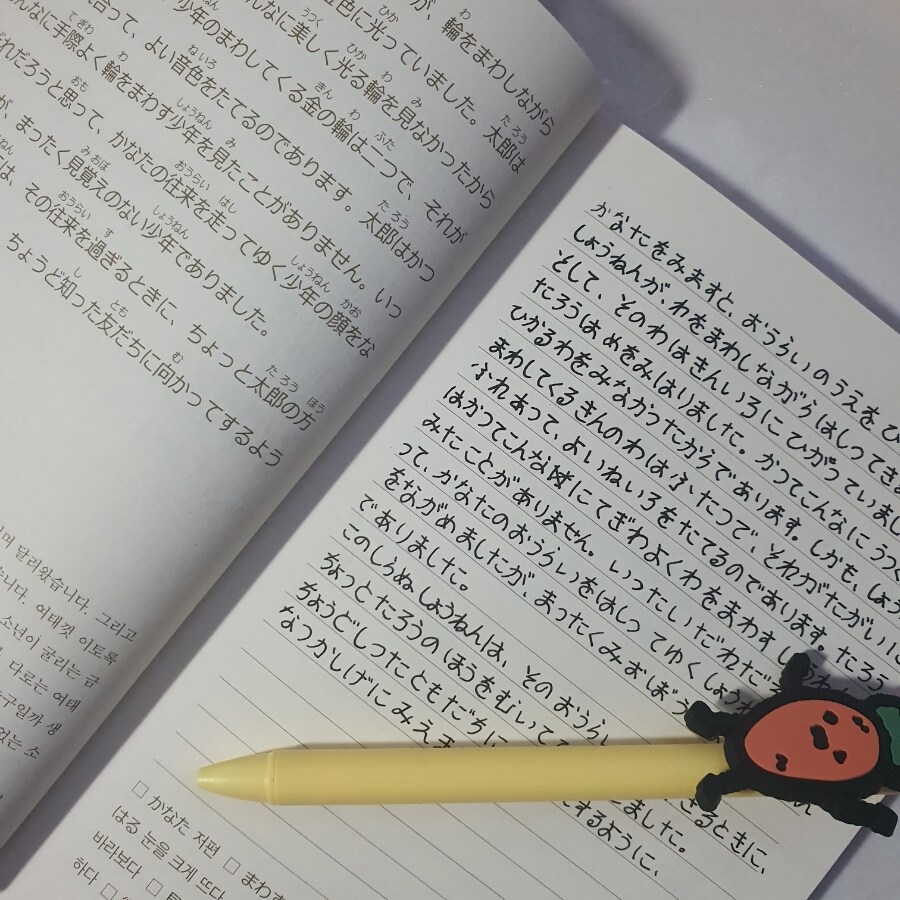 が、輪をまわしながら
色に光っていました。太郎は
んなに美しく光る輪を見なかったから
少年のまわしてくる金の輪は二つで、それが
合って、よい音色をたてるのであります。太郎はかつ
んなに手際よく輪をまわす少年を見たことがありません。いっ
だれだろうと思って、かなたの往来を走ってゆく少年の顔をな
が、まったく見覚えのない少年でありました。
は、その往来を過ぎるときに、ちょっと太郎の方
ちょうど知った友だちに向かってするよう
며 달려왔습니다. 그리고
습니다. 여태껏 이토록
소년이 굴리는 금
다로는 여태
구일까 생
없는 소
かなたをみますと、おうらいのうえをひ
しょうねんが、わをまわしながらはしってき
として、そのわはきんいろにひがっていまし
たろうはめをみはりました。かつてこんなにうつく
ひかるわをみなかったからであります。しかも、しょう
まわしてくるきんのわはふたつで、それがたがいに
ふれあって、よいねいろをたてるのであります。たろう
はかつてこんなにてぎわよくわをまわす
みたことがありません。いったいだれだ
って、かなたのおうらいをはしってゆくしょう
をながめましたが、まったくみおぼ
でありました。
このしらぬしょうねんは、そのおうら
ぎるときに、
ちょっとたろうのほうをむいて
ました。
ちょうどしったともだちに
するように、
なつかしげにみえ
□ かなた 저편 □ まわ
はる 눈을 크게 뜨다
바라보다 □
하다 □